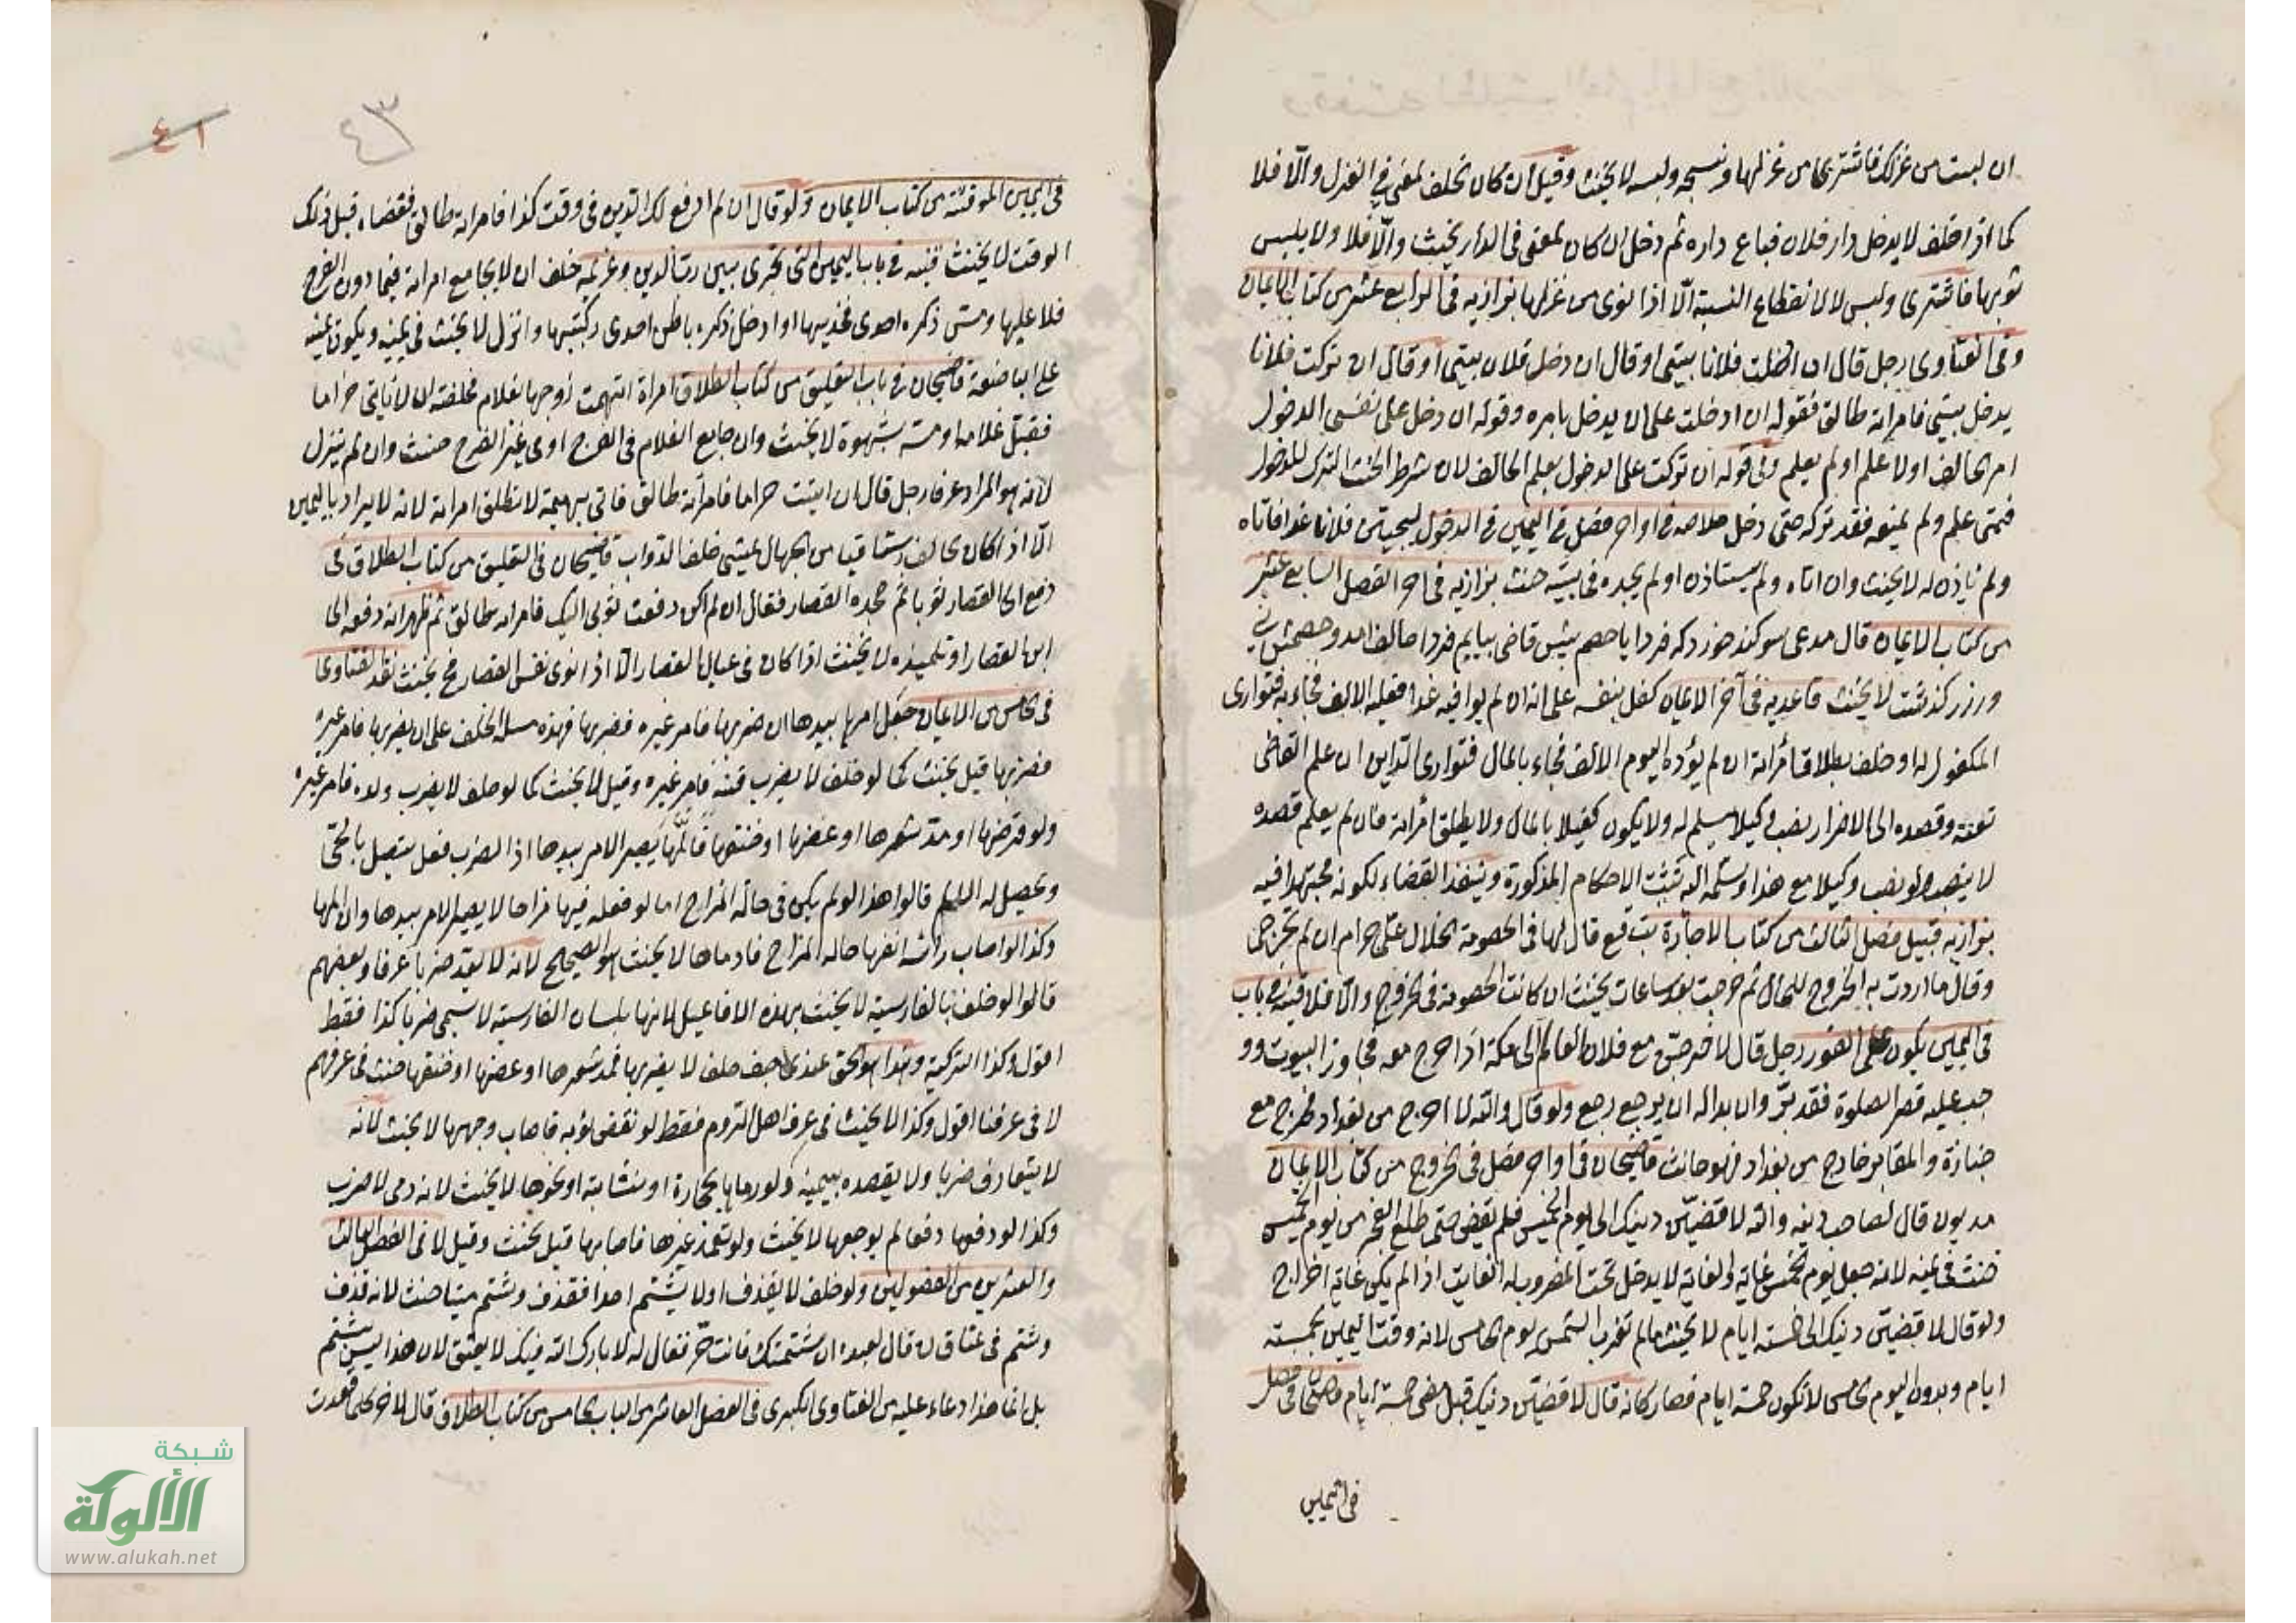 ان لبست من غزلك فاشترى من غزلها ونسجه ولبسه لا يحنث وقيل ان كان يحلف لمعنى في الغزل والّا فلا
كما اذا حلف لا يدخل دار فلان فباع داره ثم دخل ان كان لمعنى فى الدار يحنث والّا فلا ولا يلبس
ثوبها فاشترى ولبس لا لانقطاع النسبة الّا اذا نوى من غزلها بزازيه فى الرابع عشر من كتاب الايمان
وفى الفتاوى رجل قال ان ادخلت فلانا بيتى او قال ان دخل فلان بيتى او قال ان تركت فلانا
يدخل بيتى فامرأته طالق فقوله ان ادخلت على ان يدخل بامره وقوله ان دخل على نفس الدخول
امر الحالف اولا علم او لم يعلم وفى قوله ان تركت على الدخول بعلم الحالف لان شرط الحنث الترك للدخول
فمتى علم ولم يمنع فقد تركه حتى دخل خلاصه فى اواخر فصل فى اليمين فى الدخول ليجيئن فلانا غدا فاتاه
ولم ياذن له لا يحنث وان اتاه ولم يستاذن او لم يجده فى بيته حنث بزازيه فى اخر الفصل السابع عشر
من كتاب الايمان قال مدعى سوكند خورد كه فردا با خصم پيش قاضى بيايم فردا حالف امد وخصمش نى
وروز كذشت لا يحنث قاعديه فى آخر الايمان كفل بنفسه على انه ان لم يوافيه غدا فعليه الالف فجاء به فتوارى
المكفول له او حلف بطلاق امرأته ان لم يؤد اليوم الالف فجاء بالمال فتوارى الداين ان علم القاضى
تعنته وقصده الى الاضرار نصب وكيلا يسلم له ولا يكون كفيلا بالمال ولا يطلق امرأته فان لم يعلم قصده
لا ينصب ولو نصب وكيلا مع هذا وسلمه اليه تثبت الاحكام المذكورة وينفذ القضاء لكونه مجتهدا فيه
بزازيه قبيل فصل الثالث من كتاب الاجازة قال لها فى الخصومة الحلال علىّ حرام ان لم تخرجى
وقال ما اردت به الخروج للحال ثم خرجت بعد ساعات يحنث ان كانت الخصومة فى الخروج والّا فلا قنيه فى باب
فى اليمين يكون على الفور رجل قال لاخرجن مع فلان العام الى مكة اذا خرج معه فجاوز البيوت وو
جب عليه قصر الصلوة فقد برّ وان بدا له ان يرجع رجع ولو قال والله لا اخرج من بغداد فخرج مع
جنازة والمقابر خارج من بغداد فهو حانث قاضيخان فى اواخر فصل فى الخروج من كتاب الايمان
مديون قال لصاحب دينه والله لاقضينّ دينك الى يوم الخميس فلم يقض حتى طلع الفجر من يوم الخميس
حنث فى يمينه لانه جعل يوم الخميس غاية والغاية لا يدخل تحت المضروب له الغاية اذا لم يكن غاية اخراج
ولو قال لاقضينّ دينك الى خمسة ايام لا يحنث مالم تغرب الشمس يوم الخامس لانه وقت اليمين بخمسة
ايام وبدون اليوم الخامس لا تكون خمسة ايام فصار كانه قال لاقضين دينك قبل مضى خمسة ايام قاضيخان فى فصل
فى اليمين
٤١
٤٣
فى اليمين الموقتة من كتاب الايمان ولو قال ان لم ارفع لك الدين فى وقت كذا فامراته طالق فقضاه قبل ذلك
الوقت لا يحنث قنيه فى باب اليمين التى تجرى بين رب الدين وغريمه حلف ان لا يجامع امراته فيما دون الفرج
فلا عليها ومس ذكره احدى فخذيها او ادخل ذكره باطن احدى ركبتيها وانزل لا يحنث فى يمينه ويكون يمينه
على المباضعة قاضيخان فى باب التعليق من كتاب الطلاق امرأة اتهمت زوجها بغلام فحلفته ان لا ياتى حراما
فقبل غلاما او مسّه بشهوة لا يحنث وان جامع الغلام فى الفرج او فى غير الفرج حنث وان لم ينزل
لانه هو المراد عرفا رجل قال ان اتيت حراما فامرأته طالق فاتى بهيمة لا تطلق امراته لانه لا يراد باليمين
الّا اذا كان الحالف رستاقيا من الجهال يمشى خلف الدواب قاضيخان فى التعليق من كتاب الطلاق فى
دفع الى القصار ثوبا ثم جحده القصار فقال ان لم اكن دفعت ثوبى اليك فامراته طالق ثم ظهر انه دفعه الى
ابن القصار او تلميذه لا يحنث اذا كان فى عيال القصار الّا اذا نوى نفس القصار فح يحنث نقد الفتاوى
فى الخامس من الايمان جعل امرها بيدها ان ضربها فامر غيره فضربها فهذه مسئلة الحلف على ان لا يضربها فامر غيره
فضربها قيل يحنث كما لو حلف لا يضرب قنه فامر غيره وقيل لا يحنث كما لو حلف لا يضرب ولده فامر غيره
ولو قرضها او مدّ شعرها او عضها او خنقها فآلمها يصير الامر بيدها اذ الضرب فعل يتصل بالحى
ويحصل له الالم قالوا هذا لو لم يكن فى حالة المزاح اما لو فعله فيها مزاحا لا يصير الامر بيدها وان المها
وكذا لو اصاب رأسه انفها حاله المزاح فادماها لا يحنث هو الصحيح لانه لا يعد ضربا عرفا وبعضهم
قالوا لو حلف بالفارسية لا يحنث بهذه الافاعيل لانها بلسان الفارسية لا يسمى ضربا كذا فقط
اقول وكذا التركية وهذا هو الحق عندى حلف لا يضربها فمد شعرها او عضها او خنقها حنث فى عرفهم
لا فى عرفنا اقول وكذا لا يحنث فى عرف اهل الروم فقط لو نفض ثوبه فاصاب وجهها لا يحنث لانه
لا يتعارف ضربا ولا يقصده بيمينه ولو رماها بحجارة او نشابة او نحوها لا يحنث لانه رمى لا ضرب
وكذا لو دفعها دفعا لم يوجعها لا يحنث ولو تعمد غيرها فاصابها قيل يحنث وقيل لا فى الفصل الثالث
والعشرين من الفصولين ولو حلف لا يقذف او لا يشتم احدا فقذف وشتم ميتا حنث لانه قذف
وشتم فى عتاق قال لعبده ان شتمتك فانت حرّ فقال له لا بارك الله فيك لا يعتق لان هذا ليس بشتم
بل انما هذا دعاء عليه من الفتاوى الكبرى فى الفصل العاشر من الباب الخامس من كتاب الطلاق قال لاخر كلما قعدت
شبكة
الألوكة
www.alukah.net